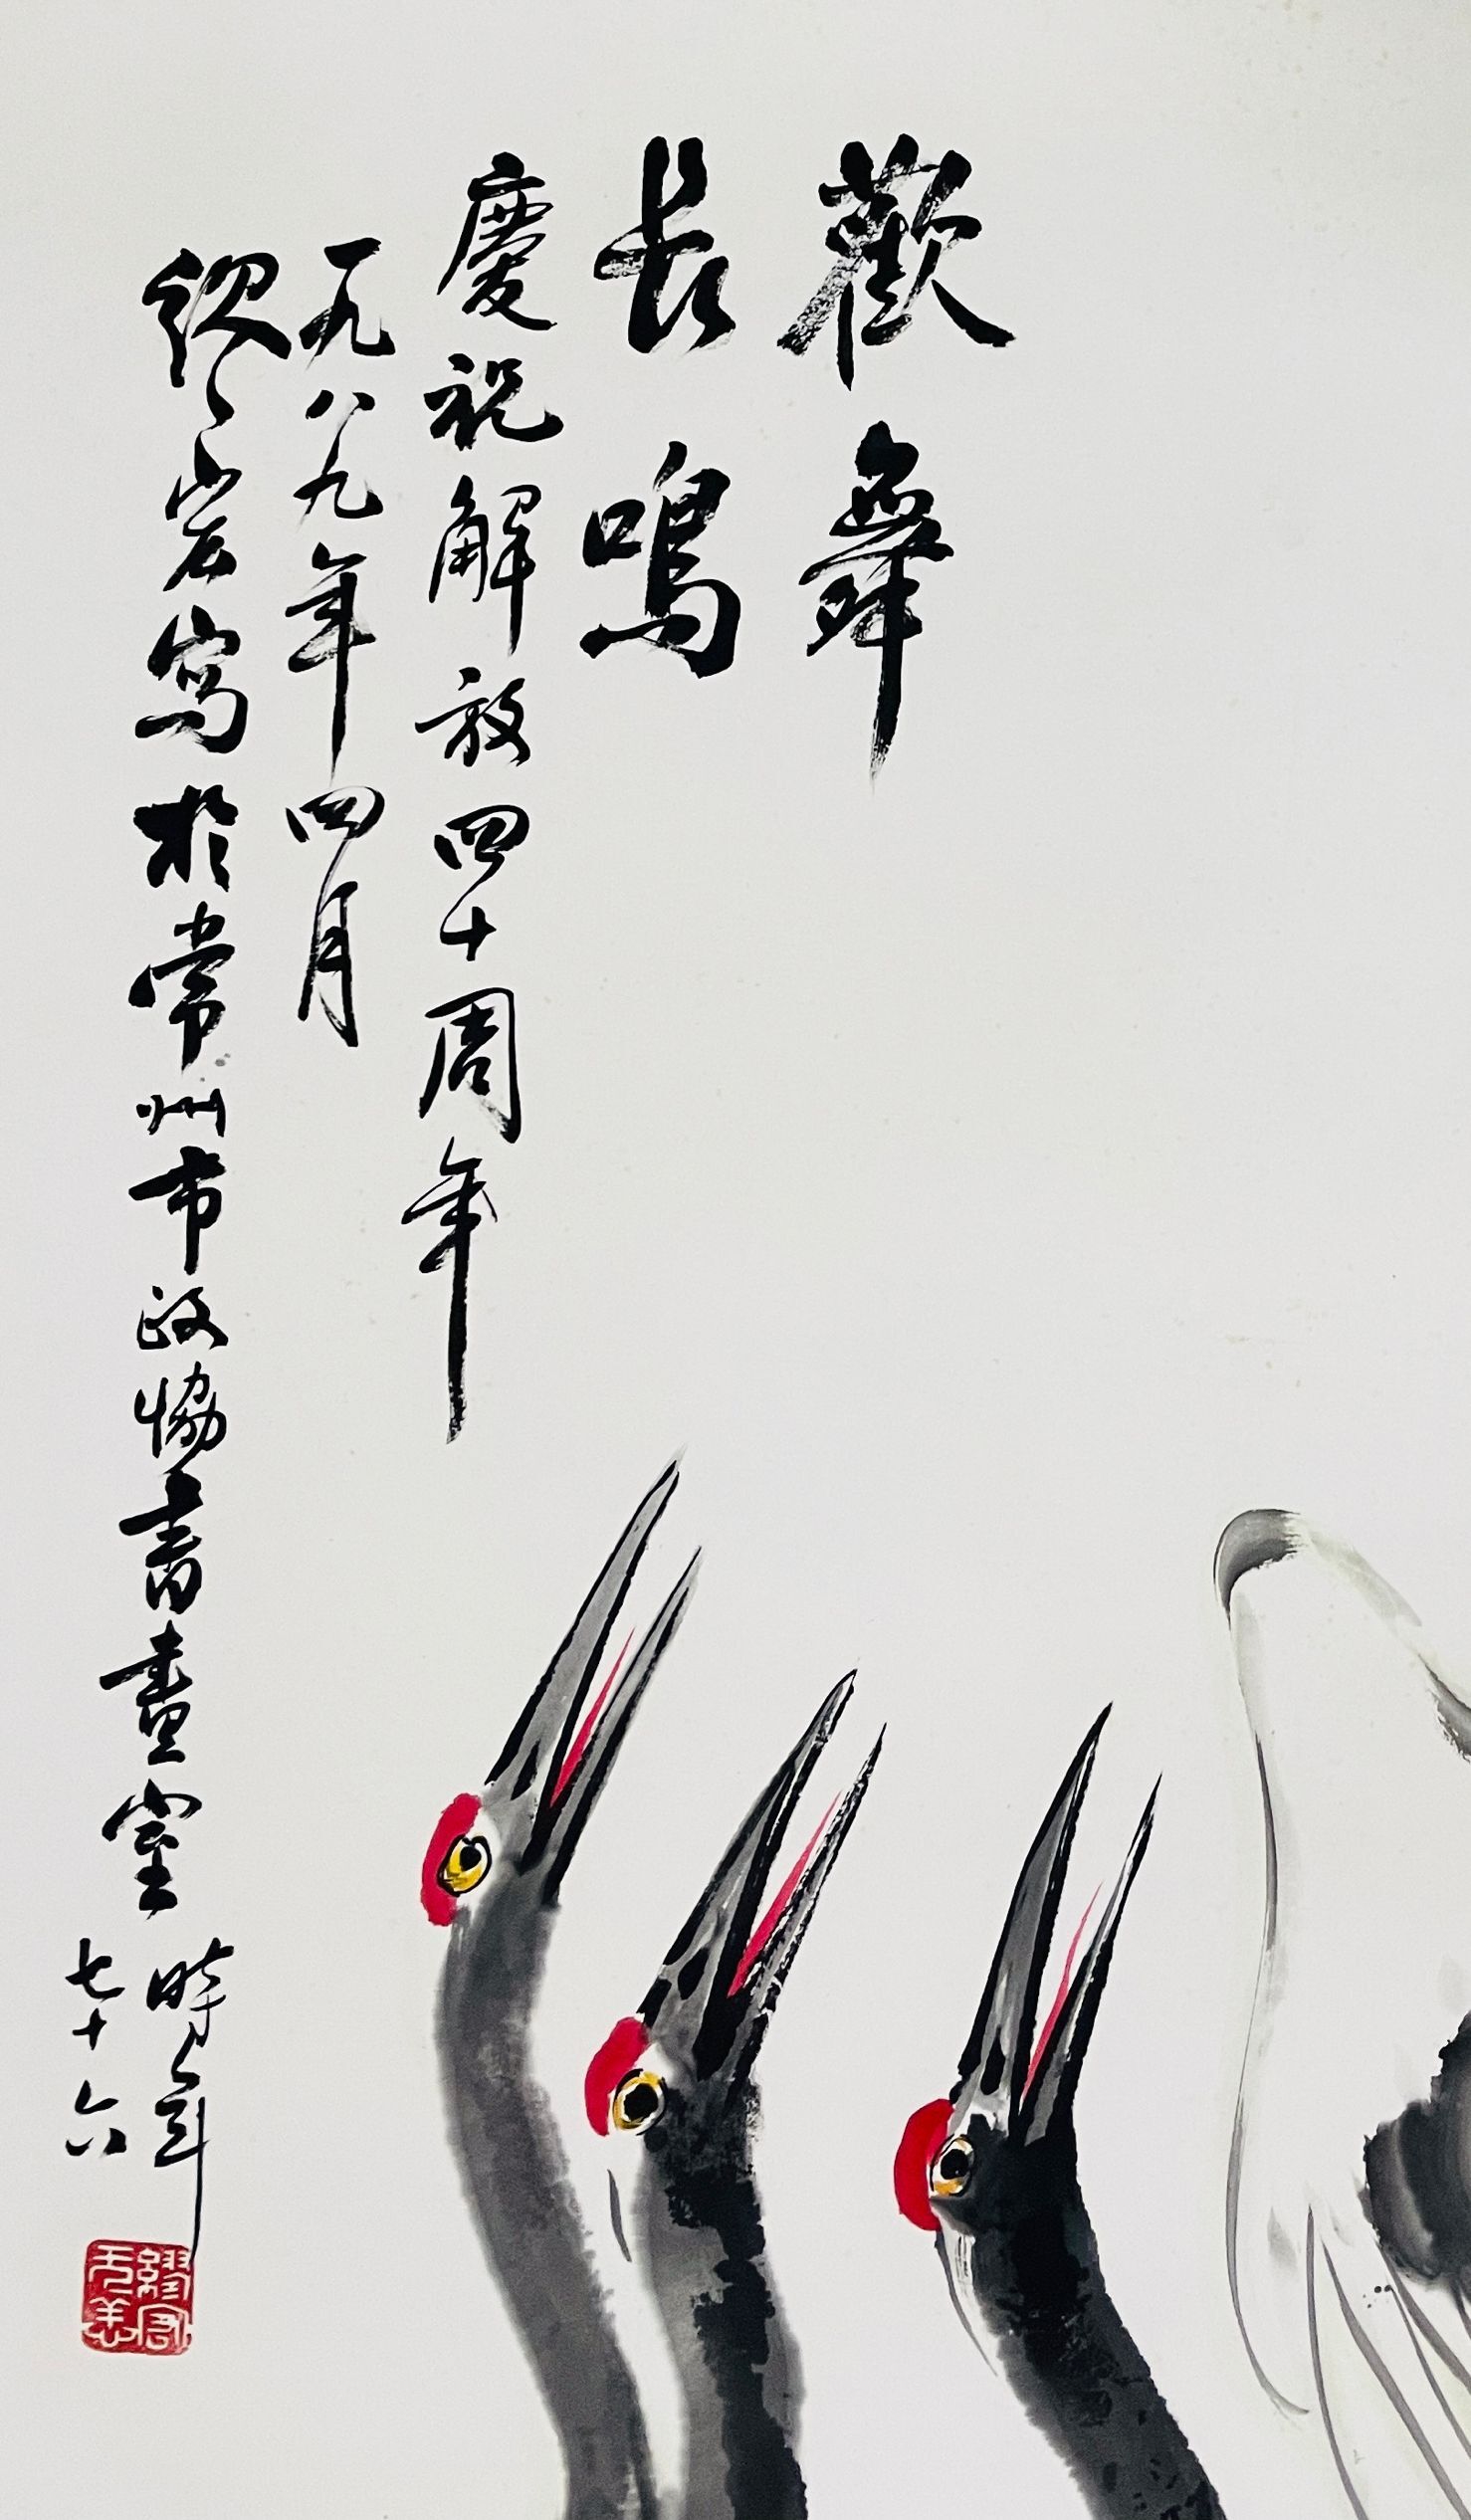 歡舞
長鳴
慶祝解放四十周年
一九八九年四月
宏岩寫於常州市政協書畫室
時年
七十六